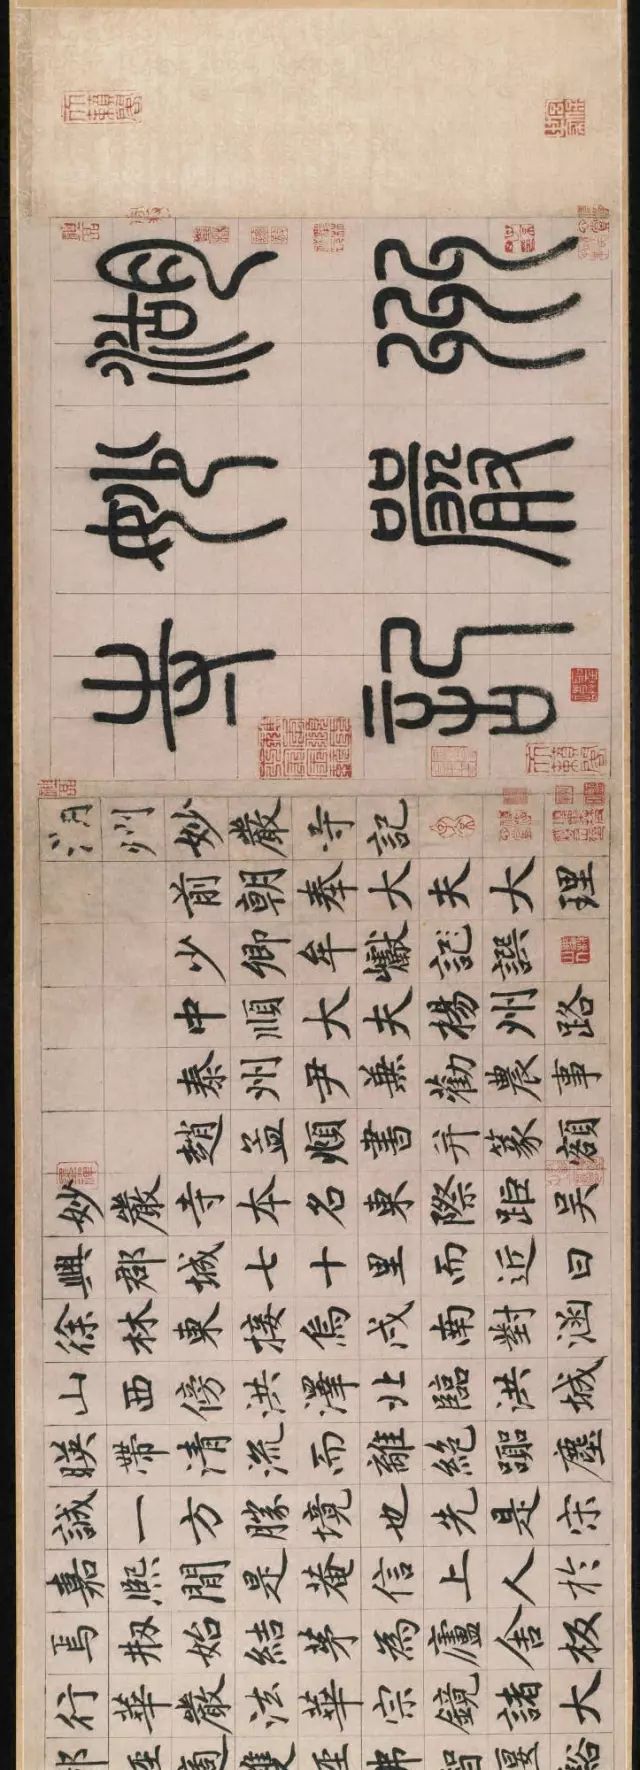 湖州
妙嚴
寺記
湖州妙嚴寺記
前朝奉大夫大理
少卿牟巘記譔
中順大夫揚州路
泰州尹兼勸農事
趙孟頫書并篆額
妙嚴寺本名東際距吳
興郡城七十里而近曰
徐林東接烏戍南對涵
山西傍洪澤北臨洪城
映帶清流而離絕囂塵
誠一方勝境也先是宋
嘉熙間是菴信上人於
焉刱始結茅為廬舍板
行華嚴法華宗鏡諸大
部經適雙徑佛智偃谿